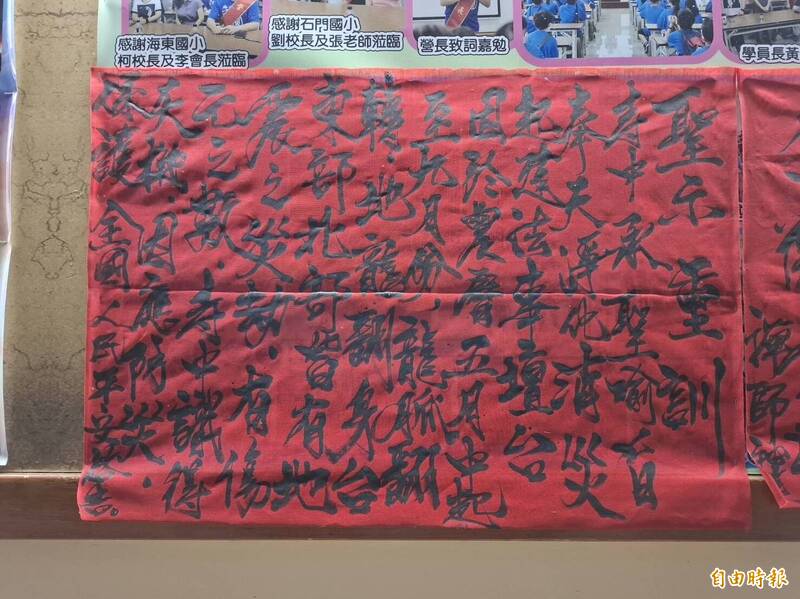 感謝海東國小
柯校長及李會長蒞臨
感謝石門國小
劉校長及張老師蒞臨
營長致詞嘉勉
學員長黃
聖示重訓
寺中承聖喻旨
奉天淨化消災
起建法奉壇台
因於農曆五月中起
至九月份龍脈翻
轉、地龍翻身台
東部北部皆有地
震之災劫、有傷
亡之數、寺中識得
天機、因應防災、
保護全國人民平安
自由時報